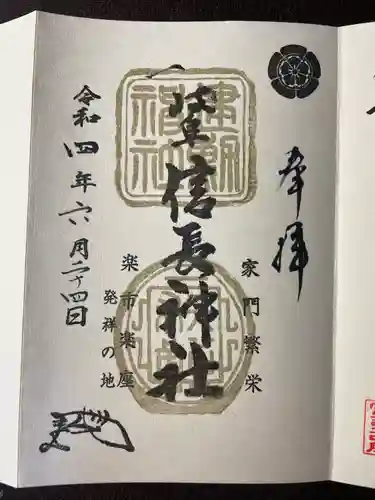 奉拝
家門繁栄
岐阜信長神社
楽市楽座
発祥の地
令和四年六月二十四日